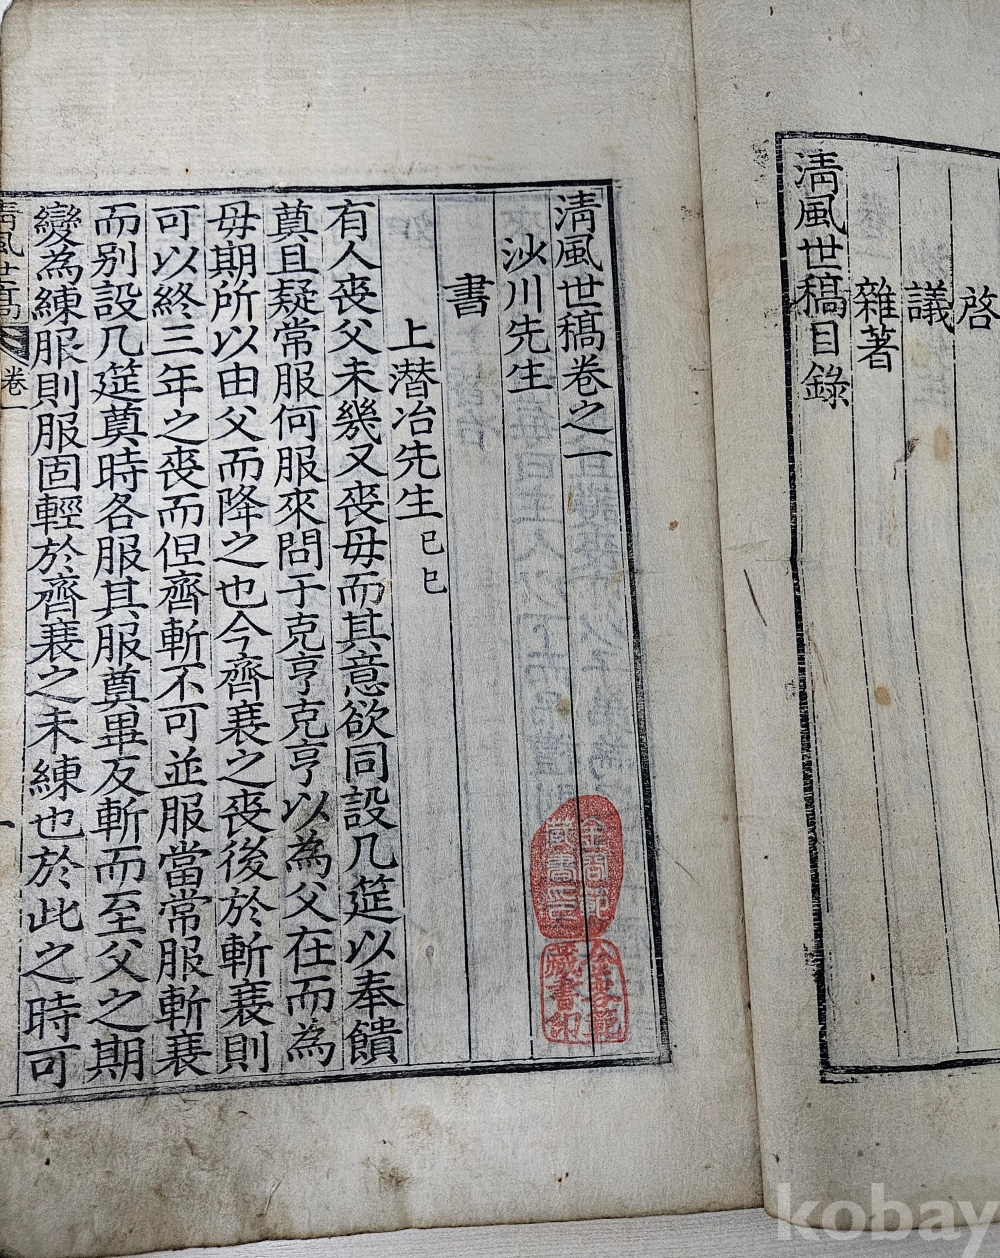 啓
議
雜著
淸風世稿目錄
淸風世稿卷之一
沙川先生
書
上潜冶先生 己巳
有人喪父未幾又喪母而其意欲同設几筵以奉饋
奠且疑常服何服來問于克亨克亨以為父在而為
母期所以由父而降之也今齊衰之喪後於斬衰則
可以終三年之喪而但齊斬不可並服當常服斬衰
而别設几筵奠時各服其服奠畢反斬而至父之期
變為練服則服固輕於齊衰之未練也於此之時可
淸風世稿 卷一 一
藏書印
藏書印
kobay